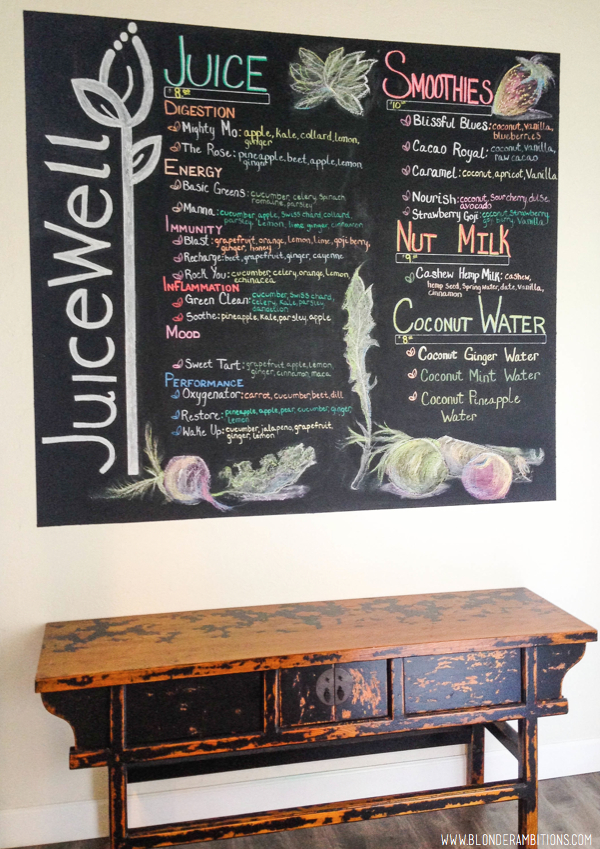 JuiceWell
JUICE
$ 8
DIGESTION
Mighty Mo: apple, kale, collard, lemon,
ginger
The Rose: pineapple, beet, apple, lemon
ginger
ENERGY
Basic Greens: cucumber, celery, spinach
romaine, parsley
Manna: cucumber, apple, swiss chard, collard
parsley, lemon, lime, ginger, cinnamon
IMMUNITY
Blast: grapefruit, orange, lemon, lime, goji berry,
ginger, honey
Recharge: beet, grapefruit, ginger, cayenne
Rock You: cucumber, celery, orange, lemon
echinacea
INFLAMMATION
Green Clean: cucumber, swiss chard,
celery, kale, parsley
dandelion
Soothe: pineapple, kale, parsley, apple
MOOD
Sweet Tart: grapefruit, apple, lemon,
ginger, cinnamon, maca
PERFORMANCE
Oxygenator: carrot, cucumber, beet, dill
Restore: pineapple, apple, pear, cucumber, ginger,
lemon
Wake Up: cucumber, jalapeno, grapefruit,
ginger, lemon
SMOOTHIES
$10
Blissful Blues: coconut, vanilla,
blueberries
Cacao Royal: coconut, vanilla,
raw cacao
Caramel: coconut, apricot, Vanilla
Nourish: coconut, sour cherry, dulse,
avocado
Strawberry Goji: coconut, Strawberry,
goji berry, Vanilla
NUT MILK
$ 9
Cashew Hemp Milk: cashew,
hemp seed, Spring water, date, Vanilla,
cinnamon
COCONUT WATER
$ 8
Coconut Ginger Water
Coconut Mint Water
Coconut Pineapple
Water
WWW.BLONDERAMBITIONS.COM